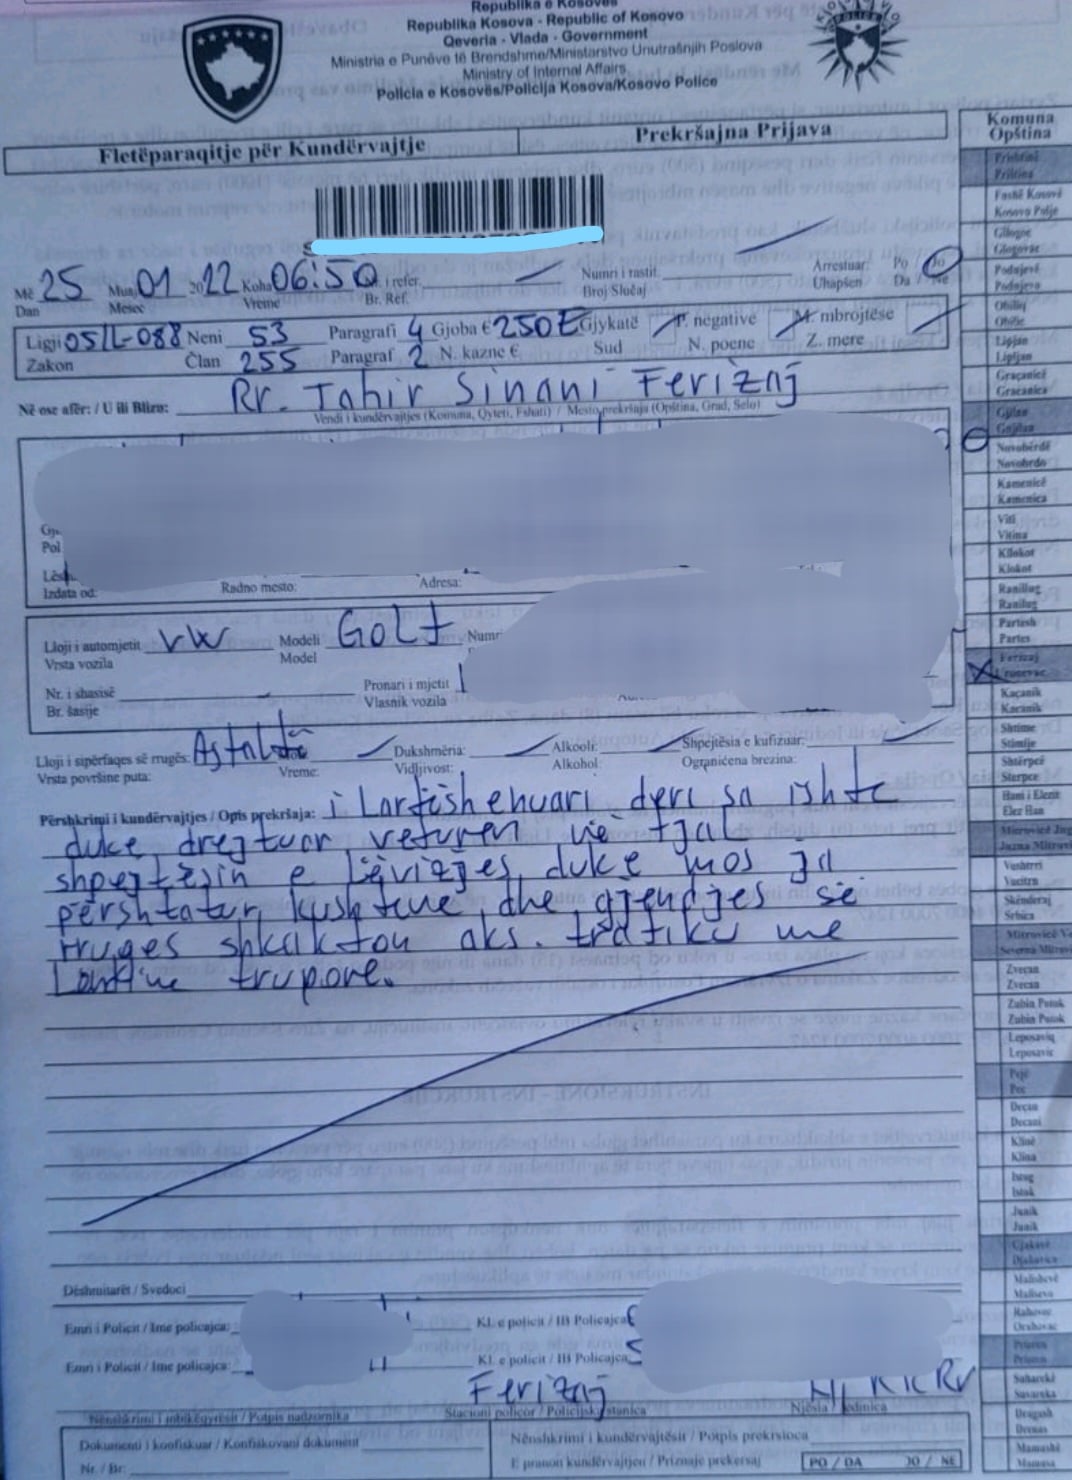 Republika e Kosovës
Republika Kosova - Republic of Kosovo
Qeveria - Vlada - Government
Ministria e Punëve të Brendshme/Ministarstvo Unutrašnjih Poslova
Ministry of Internal Affairs
Policia e Kosovës/Policija Kosova/Kosovo Police
Fletëparaqitje për Kundërvajtje Prekršajna Prijava
Më 25 Muaj 01 2022 Koha 06:50 Nr. i refer. Numri i rastit: Arrestuar: Po Jo
Dan Mesec Vreme Br. Ref. Broj Slučaj Uhapšen Da Ne
Ligji 05/L-088 Neni 53 Paragrafi 4 Gjoba € 250€ Gjykatë P. negative M. mbrojtëse
Zakon Član 255 Paragraf 2 N. kazne € Sud N. poene Z. mere
Në ose afër: / U ili Blizu: Rr. Tahir Sinani Ferizaj
Vendi i kundërvajtjes (Komuna, Qyteti, Fshati) / Mesto prekršaja (Opština, Grad, Selo)
Pol
Izdata od: Radno mesto: Adresa:
Lloji i automjetit VW Modeli GOLF Numri
Vrsta vozila Model
Nr. i shasisë Pronari i mjetit
Br. šasije Vlasnik vozila
Lloji i sipërfaqes së rrugës: Asfaltë Dukshmëria: Alkooli: Shpejtësia e kufizuar:
Vrsta površine puta: Vreme: Vidljivost: Alkohol: Ograničena brzina:
Përshkrimi i kundërvajtjes / Opis prekršaja: i Lartëshenuari deri sa ishte
duke drejtuar veturen
shpejtësin e Lëvizjes, duke mos ja
përshtatur kushteve dhe gjendjes së
rruges shkakton aks. trafiku me
Lëndime trupore.
Dëshmitarët / Svedoci
Emri i Policit / Ime policajca: Kl. e policit / IB Policajca
Emri i Policit / Ime policajca: Kl. e policit / IB Policajca
Ferizaj
Nënshkrimi i mbikëqyrësit / Potpis nadzornika Stacioni policor / Policijska stanica Njësia / Jedinica
Dokumenti i konfiskuar / Konfiskovani dokument Nënshkrimi i kundërvajtësit / Potpis prekrsioca
Nr / Br: E pranon kundërvajtjen / Priznaje prekersaj PO / DA JO / NE
Komuna
Opština
Prishtinë
Priština
Fushë Kosovë
Kosovo Polje
Gllogoc
Glogovac
Podujevë
Podujevo
Obiliq
Obilić
Lipjan
Lipljan
Graçanicë
Gracanica
Gjilan
Gnjilan
Novobërdë
Novobrdo
Kamenicë
Kamenica
Viti
Vitina
Kllokot
Klokot
Ranillug
Ranilug
Partesh
Partes
Ferizaj
Urosevac
Kaçanik
Kacanik
Shtime
Stimlje
Shtërpcë
Sterpce
Hani i Elezit
Elez Han
Vushtrri
Vucitrn
Skënderaj
Srbica
Zvecan
Zvecan
Zubin Potok
Zubin Potok
Leposaviq
Leposavic
Pejë
Pec
Deçan
Decani
Klinë
Klina
Istog
Istok
Junik
Junik
Gjakovë
Djakovica
Malishevë
Malisevo
Rahovec
Orahovac
Prizren
Prizren
Suharekë
Suvareka
Dragash
Mamushë
Mamusa